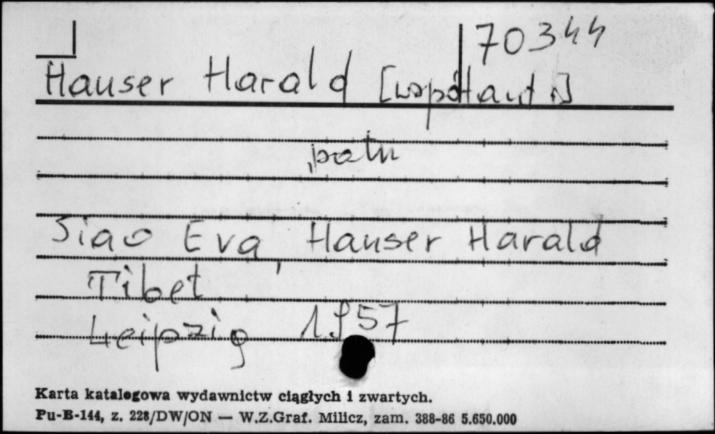 70344
Hauser Harald [współaut.]
patrz
Siao Eva, Hauser Harald
Tibet
Leipzig 1957
Karta katalogowa wydawnictw ciągłych i zwartych.
Pu-B-144, z. 228/DW/ON — W.Z.Graf. Milicz, zam. 388-86 5.650.000